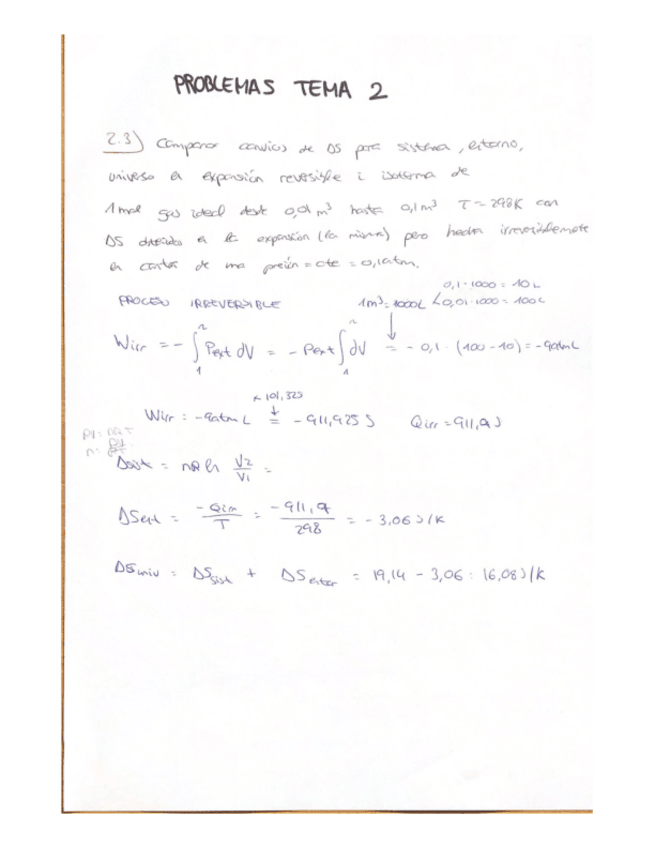 PROBLEMAS TEMA 2
2.3) Comparar cambios de DS para sistema, entorno,
universo en expansión reversible i isoterma de
1 mol gas ideal desde 0,01 m³ hasta 0,1 m³ T = 298K con
DS obtenido en la expansión (la misma) pero hecha irreversiblemente
en contra de una presión = cte = 0,1 atm.
PROCESO IRREVERSIBLE
1m³ = 1000L < 0,1·1000 = 10 L
0,01·1000 = 100L
Wirr = - ∫₁² Pext dV = - Pext ∫₁² dV = - 0,1 · (100 - 10) = - 9 atm L
Wirr = - 9 atm L = - 911,925 J Qirr = 911,9 J
× 101,325
PV = nRT
n = PV/RT
ΔSsist = nR ln V2/V1 =
ΔSent = -Qirr/T = -911,9/298 = - 3,06 J/K
ΔSuniv = ΔSsist + ΔSentor = 19,14 - 3,06 = 16,08 J/K